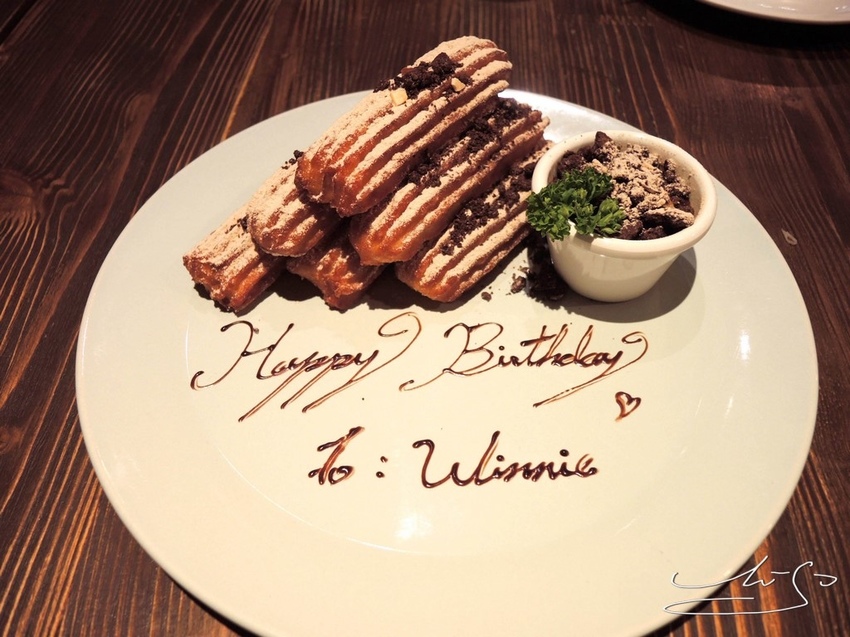 Happy Birthday
To : Winnie